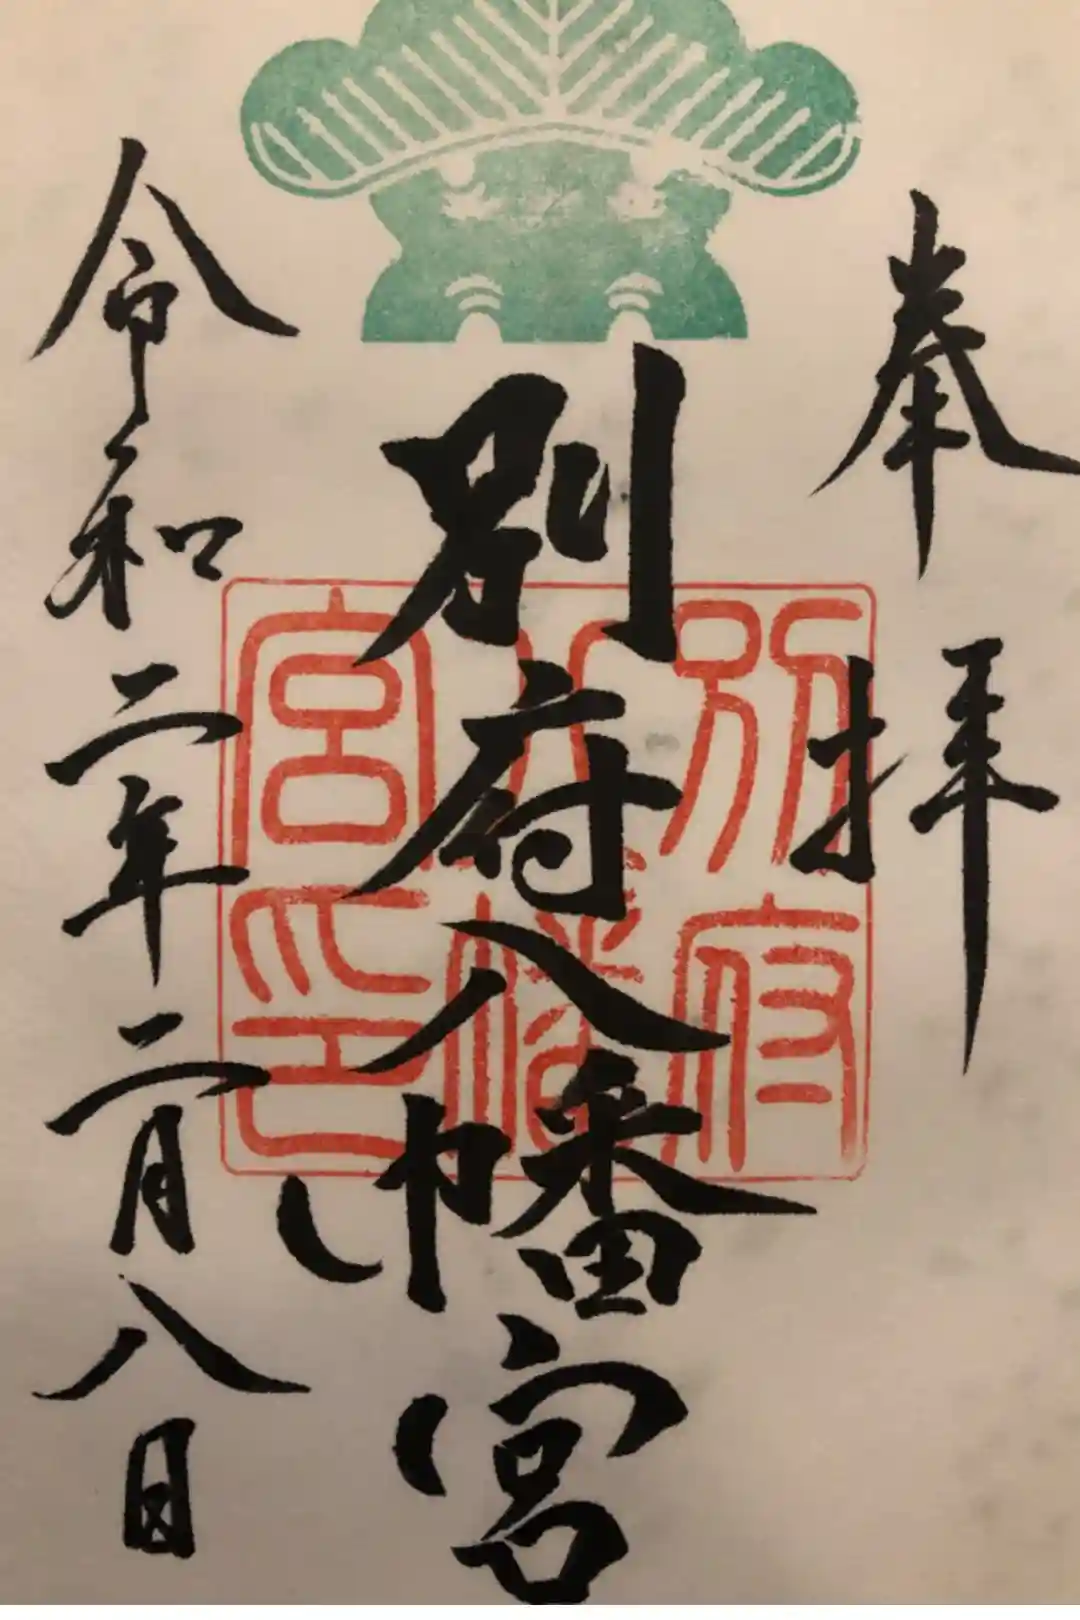 奉拝
別府八幡宮
別府八幡宮印
令和二年二月八日